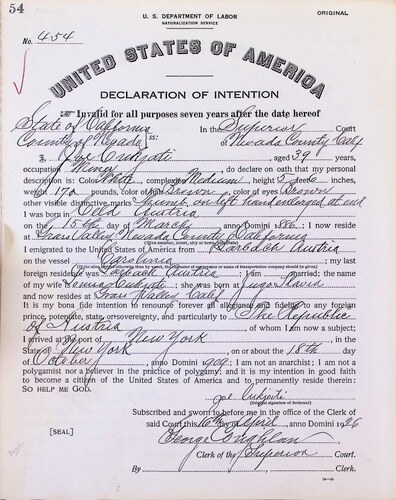 54
U. S. DEPARTMENT OF LABOR
NATURALIZATION SERVICE
ORIGINAL
No. 454
UNITED STATES OF AMERICA
DECLARATION OF INTENTION
Invalid for all purposes seven years after the date hereof
State of California In the Superior Court
County of Nevada ss: of Nevada County Calif
I, Joe , aged 39 years,
occupation Miner, do declare on oath that my personal
description is: Color White, complexion Medium, height 5 feet 6 inches,
weight 170 pounds, color of hair Brown, color of eyes Brown
other visible distinctive marks Thumb on left hand enlarged at end
I was born in Austria
on the 15th day of March, anno Domini 1886; I now reside
at Grass Valley Nevada County California
I emigrated to the United States of America from Austria
on the vessel Carolinia; my last
foreign residence was Austria; I am married; the name
of my wife is ; she was born at Jugo Slavia
and now resides at Grass Valley Calif
It is my bona fide intention to renounce forever all allegiance and fidelity to any foreign
prince, potentate, state, or sovereignty, and particularly to The Republic
of Austria, of whom I am now a subject;
I arrived at the port of New York, in the
State of New York, on or about the 18th day
of October, anno Domini 1909; I am not an anarchist; I am not a
polygamist nor a believer in the practice of polygamy; and it is my intention in good faith
to become a citizen of the United States of America and to permanently reside therein:
SO HELP ME GOD.
Joe
(Original signature of declarant)
Subscribed and sworn to before me in the office of the Clerk of
said Court this 16th day of April, anno Domini 1926
[SEAL]
George Coughlan
Clerk of the Superior Court.
By , Clerk.